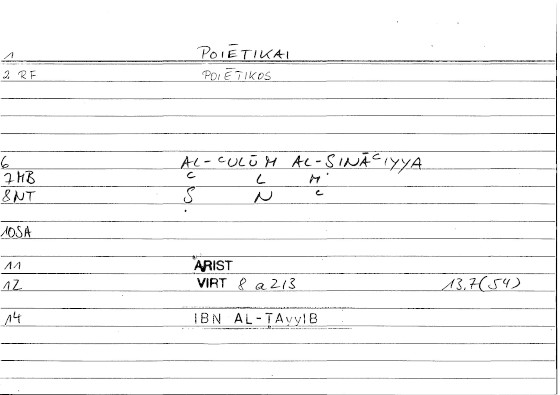 1 POIĒTIKAI
2 RF POIĒTIKOS
6 AL-ᶜULŪM AL-ṢINĀᶜIYYA
7MB ᶜ L M
8NT Ṣ N ᶜ
10SA
11 ARIST
12 VIRT 8 a 2/3 13,7(54)
14 IBN AL-ṬAyyIB